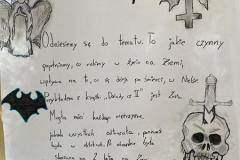 Odniesiemy się do tematu. To jakie czyny
popełniamy, co robimy w życiu na Ziemi,
wpływa na to, co się dzieje po śmierci, w Niebie
Przykładem z książki „Dziady cz. II" jest Zosia.
Mogła mieć każdego mężczyznę,
jednak wszystkich odtrącała, ponieważ
była w
na 2 lata na